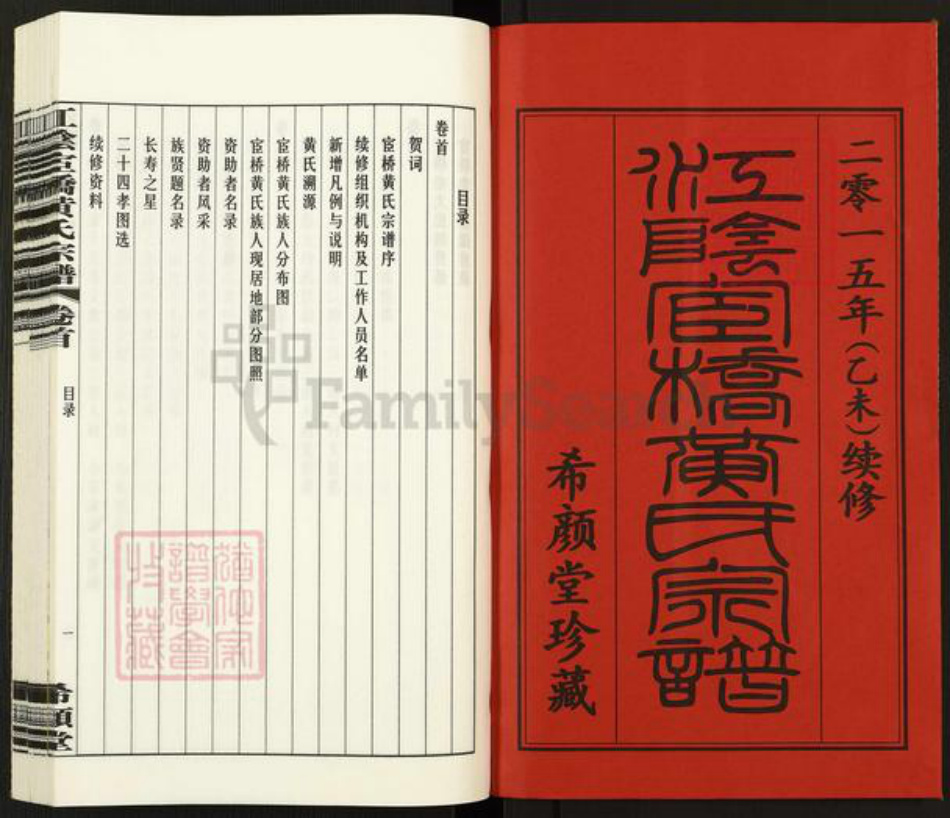 二零一五年（乙未）续修
江陰宦橋黄氏宗譜
希颜堂珍藏
目录
卷首
贺词
宦桥黄氏宗谱序
续修组织机构及工作人员名单
新增凡例与说明
黄氏溯源
宦桥黄氏族人分布图
宦桥黄氏族人现居地部分图照
资助者名录
资助者风采
族贤题名录
长寿之星
二十四孝图选
续修资料
江陰宦橋黄氏宗譜
卷首
目录
一
希顔堂
猶他家譜學會收藏
FamilySearch